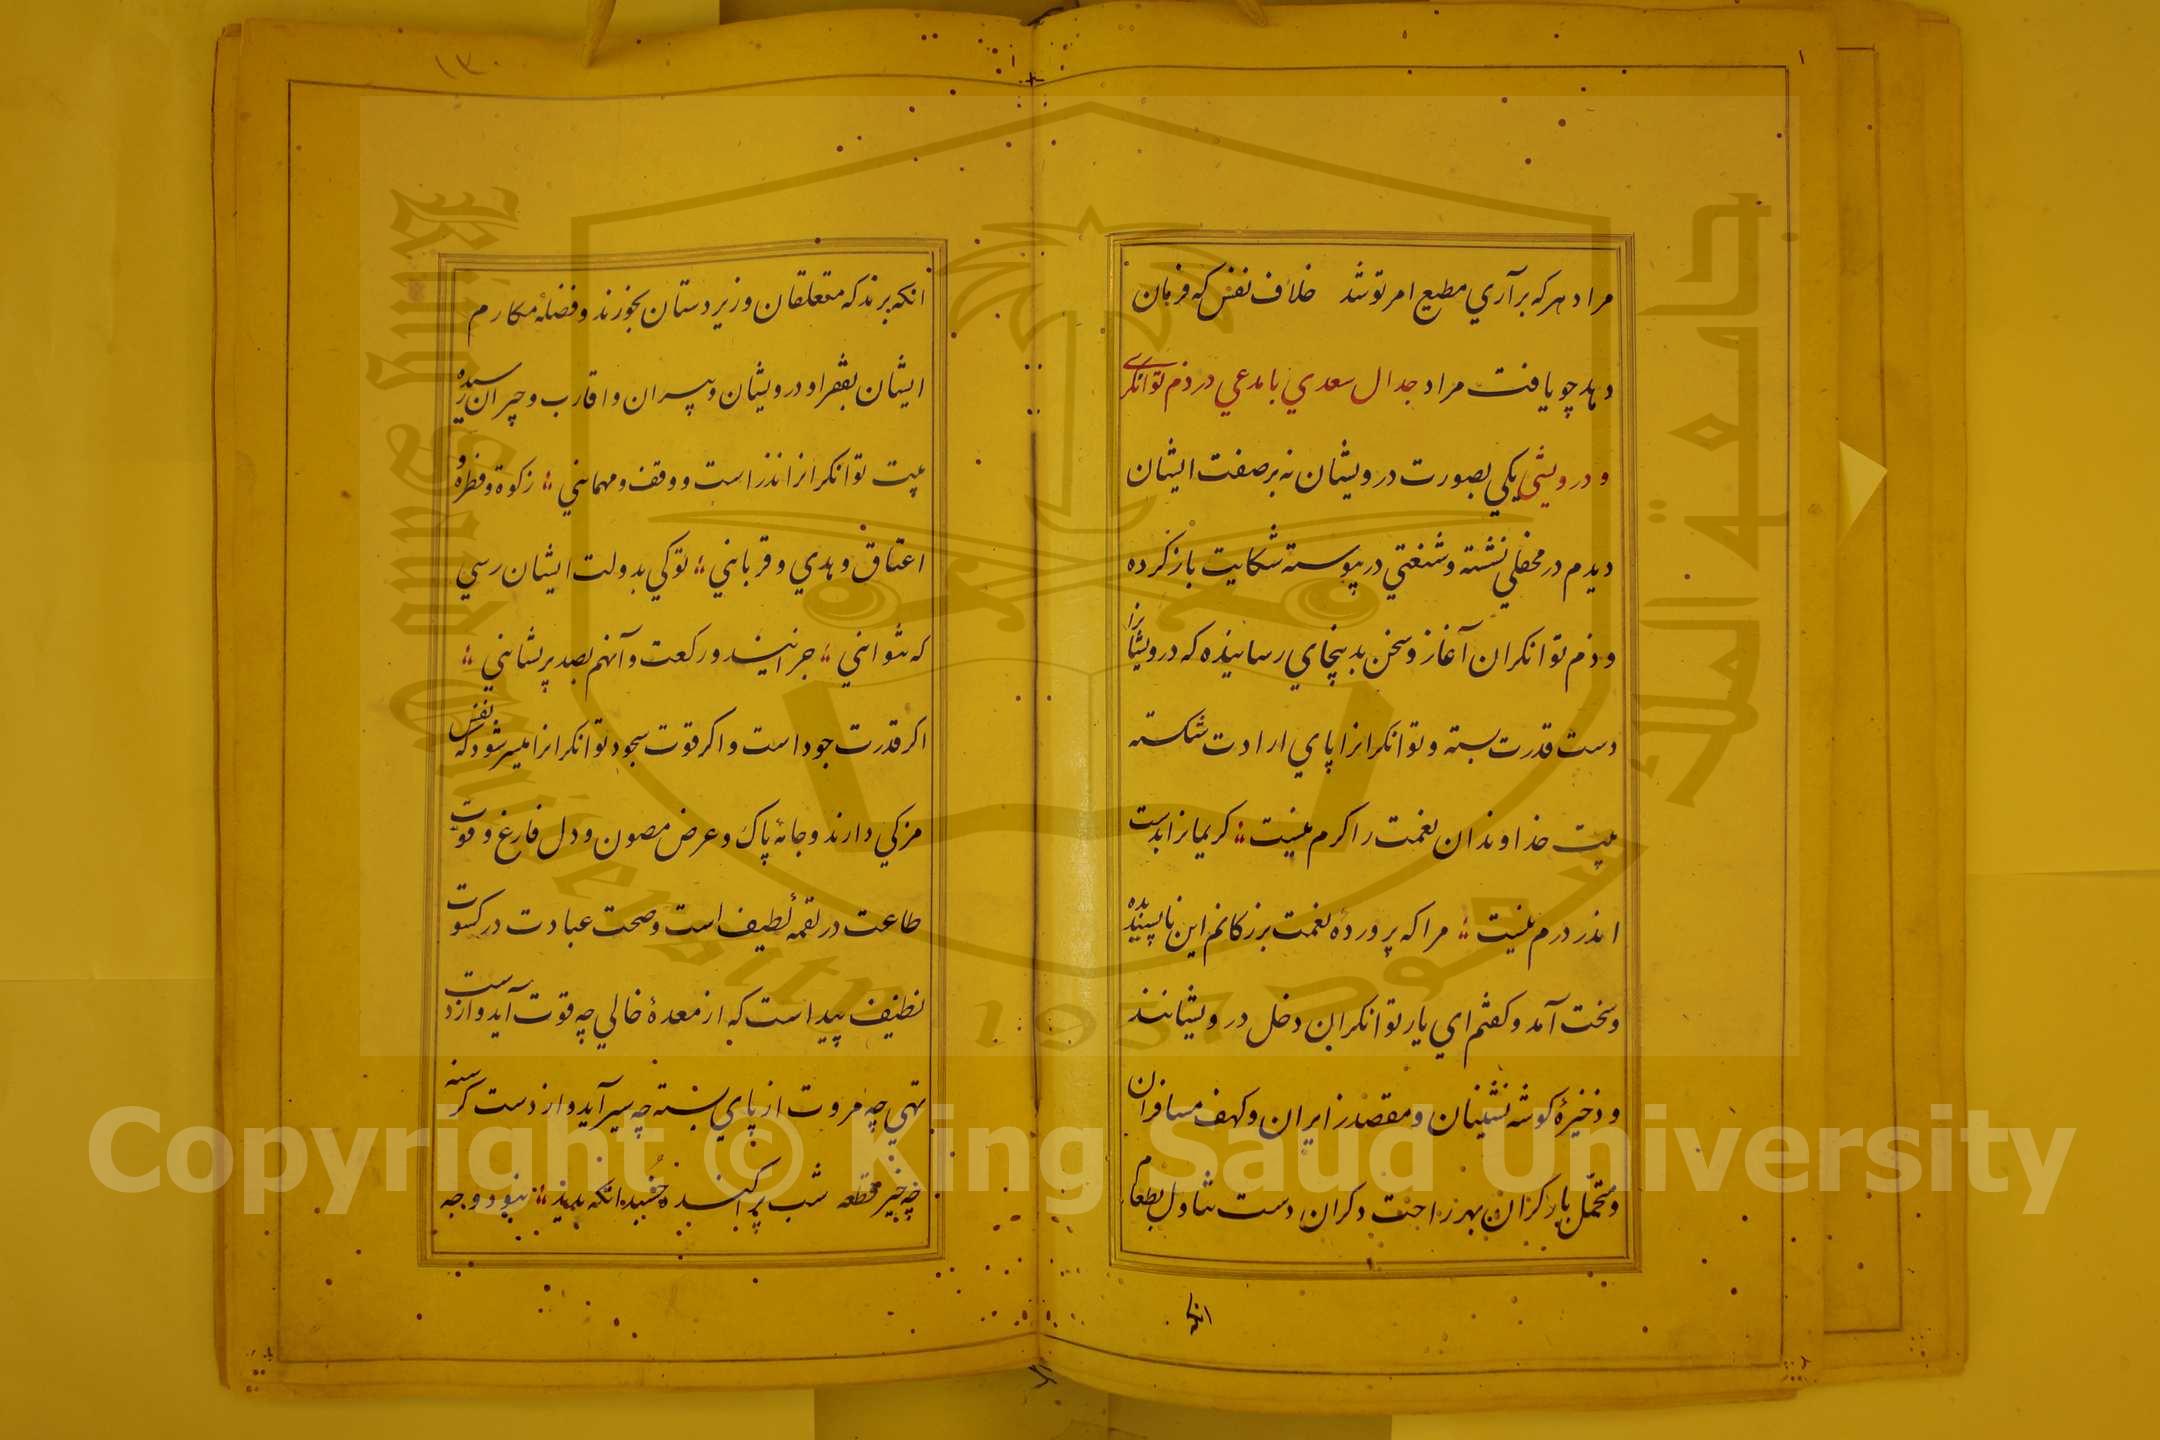 مراد هر که برآري مطيع امر تو شد خلاف نفس که فرمان
دهد چو يافت مراد جدال سعدي با مدعي در ذم توانکري
و درويشي يکي بصورت درويشان نه بر صفت ايشان
ديدم در محفلي نشسته و شنعتي در پيوسته شکايت باز کرده
و ذم توانکران آغاز و سخن بدينجاي رسانيده که درويشانرا
دست قدرت بسته و توانکرانرا پاي ارادت شکسته
بيت خداوندان نعمت را کرم نيست کريمانرا بدست
اندر درم نيست مرا که پرورده نعمت بزرکانم اين ناپسنديده
و سخت آمد و کفتم اي يار توانکران دخل درويشانند
و ذخيرهٔ کوشه نشينان و مقصد زايران و کهف مسافران
و متحمل بار کران بهر راحت دکران دست تناول بطعام
انکه
١٣٠
انکه برند که متعلقان و زيردستان بخورند و فضلهٔ مکارم
ايشان بفقرا و درويشان و پيران و اقارب و جيران رسيده
بيت توانکرانرا نذر است و وقف و مهماني زکوة و فطره و
اعتاق و هدي و قرباني تو کي بدولت ايشان رسي
که نتواني جز اينيند و رکعت و آنهم بصد پريشاني
اکر قدرت جود است و اکر قوت سجود توانکرانرا ميسر شود که نفس
مزکي دارند و جامهٔ پاک و عرض مصون و دل فارغ و قوت
طاعت در لقمهٔ لطيف است و صحت عبادت در کسوت
نظيف پيداست که از معدهٔ خالي چه قوت آيد و از دست
تهي چه مروت از پاي بسته چه سير آيد و از دست کرسنه
چه خير قطعه شب پراکنده خسبد انکه بديد نبود وجه
Copyright © King Saud University
King Saud University
جامعة الملك سعود
1957